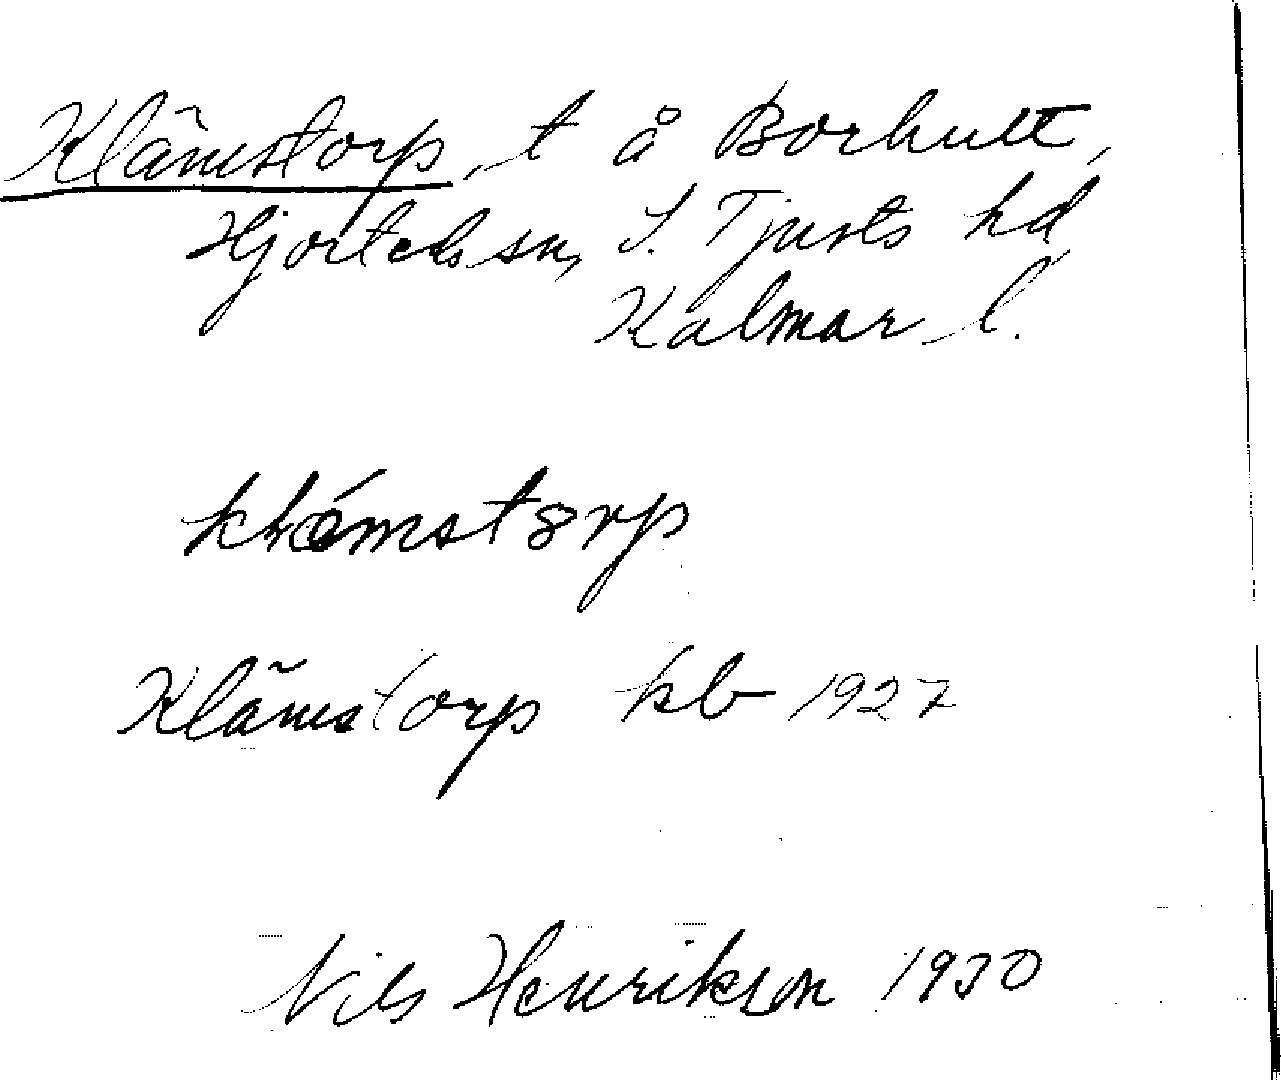 Klämstorp, t å Borhult,
Hjorteds sn, S. Tjusts hd,
Kalmar l.
klémstorp
Klämstorp kb 1927
Nils Henrikson 1930